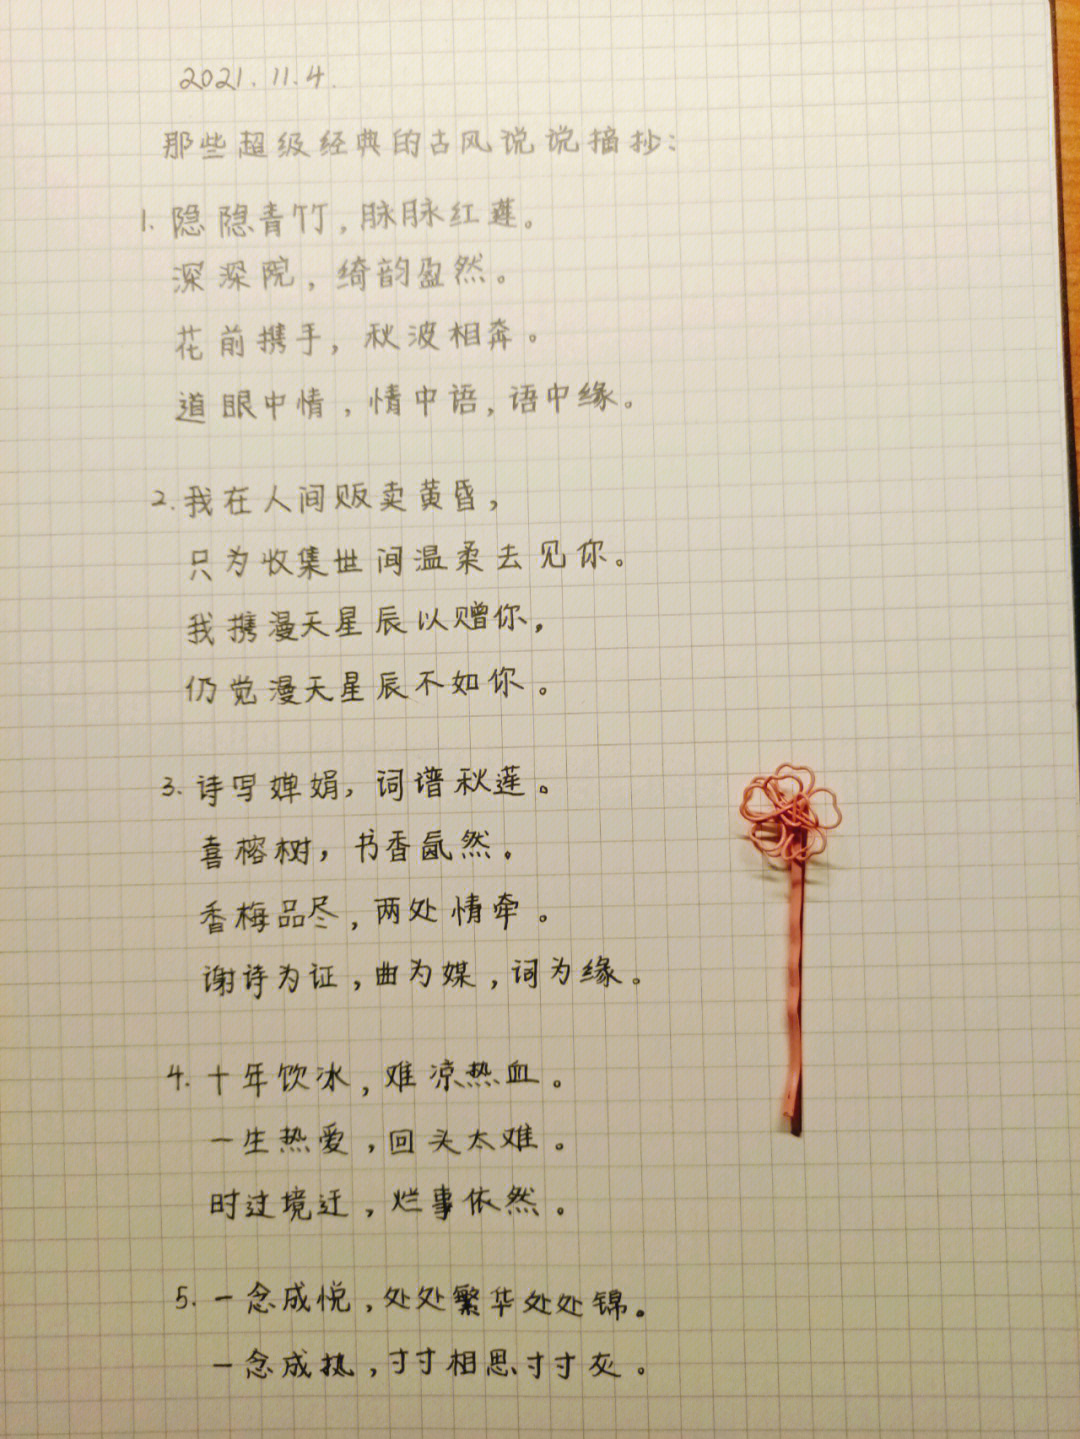 2021.11.4.
那些超级经典的古风说说摘抄：
1. 隐隐青竹，脉脉红莲。
深深院，绮韵盈然。
花前携手，秋波相奔。
道眼中情，情中语，语中缘。
2. 我在人间贩卖黄昏，
只为收集世间温柔去见你。
我携漫天星辰以赠你，
仍觉漫天星辰不如你。
3. 诗写婵娟，词谱秋莲。
喜榕树，书香氤然。
香梅品尽，两处情牵。
谢诗为证，曲为媒，词为缘。
4. 十年饮冰，难凉热血。
一生热爱，回头太难。
时过境迁，烂事依然。
5. 一念成悦，处处繁华处处锦。
一念成执，寸寸相思寸寸灰。